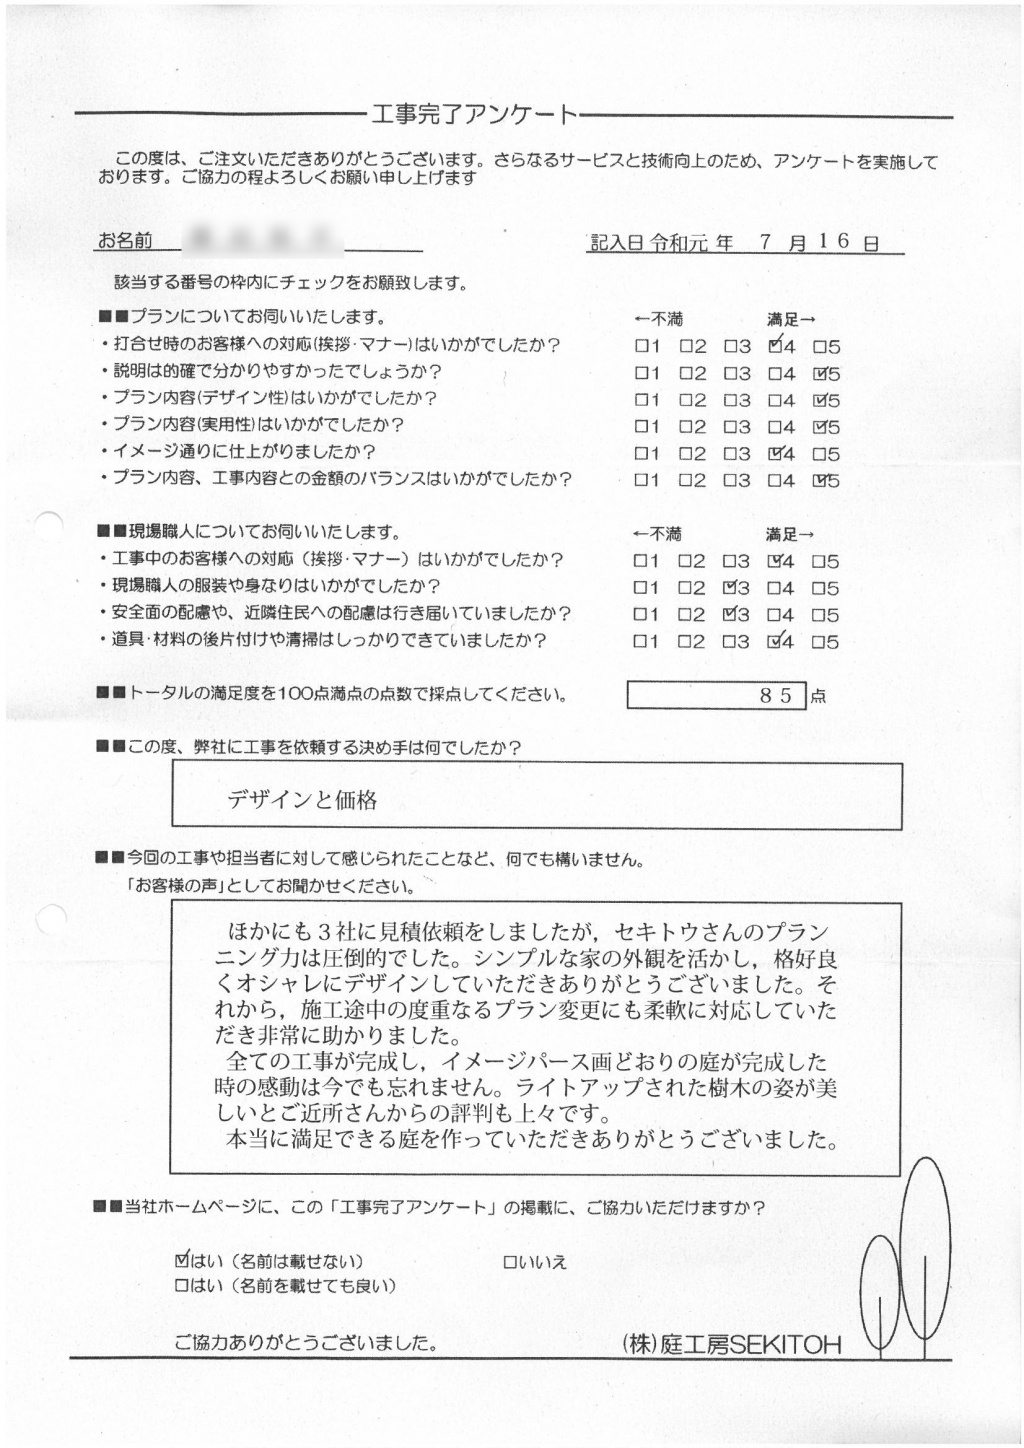 工事完了アンケート
この度は、ご注文いただきありがとうございます。さらなるサービスと技術向上のため、アンケートを実施して
おります。ご協力の程よろしくお願い申し上げます
お名前 記入日 令和元 年 7 月 16 日
該当する番号の枠内にチェックをお願致します。
■■プランについてお伺いいたします。 ←不満 満足→
・打合せ時のお客様への対応(挨拶・マナー)はいかがでしたか? □1 □2 □3 ☑4 □5
・説明は的確で分かりやすかったでしょうか? □1 □2 □3 □4 ☑5
・プラン内容(デザイン性)はいかがでしたか? □1 □2 □3 □4 ☑5
・プラン内容(実用性)はいかがでしたか? □1 □2 □3 □4 ☑5
・イメージ通りに仕上がりましたか? □1 □2 □3 ☑4 □5
・プラン内容、工事内容との金額のバランスはいかがでしたか? □1 □2 □3 □4 ☑5
■■現場職人についてお伺いいたします。 ←不満 満足→
・工事中のお客様への対応（挨拶・マナー）はいかがでしたか? □1 □2 □3 ☑4 □5
・現場職人の服装や身なりはいかがでしたか? □1 □2 ☑3 □4 □5
・安全面の配慮や、近隣住民への配慮は行き届いていましたか? □1 □2 ☑3 □4 □5
・道具・材料の後片付けや清掃はしっかりできていましたか? □1 □2 □3 ☑4 □5
■■トータルの満足度を100点満点の点数で採点してください。 85 点
■■この度、弊社に工事を依頼する決め手は何でしたか?
デザインと価格
■■今回の工事や担当者に対して感じられたことなど、何でも構いません。
「お客様の声」としてお聞かせください。
ほかにも3社に見積依頼をしましたが，セキトウさんのプラン
ニング力は圧倒的でした。シンプルな家の外観を活かし，格好良
くオシャレにデザインしていただきありがとうございました。そ
れから，施工途中の度重なるプラン変更にも柔軟に対応していた
だき非常に助かりました。
全ての工事が完成し，イメージパース画どおりの庭が完成した
時の感動は今でも忘れません。ライトアップされた樹木の姿が美
しいとご近所さんからの評判も上々です。
本当に満足できる庭を作っていただきありがとうございました。
■■当社ホームページに、この「工事完了アンケート」の掲載に、ご協力いただけますか?
☑はい（名前は載せない） □いいえ
□はい（名前を載せても良い）
ご協力ありがとうございました。 (株)庭工房SEKITOH